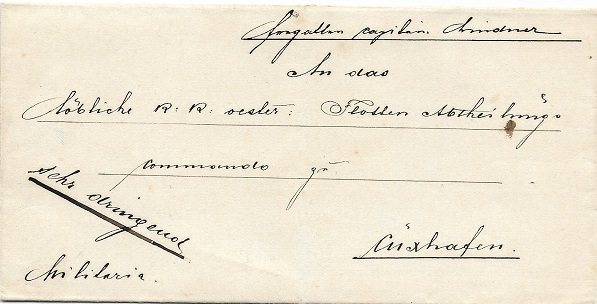 Fregatten Capitän Lindner
An das
löbliche K: K: oester: Flotten Abtheilungs
commando zu
Sehr dringend
Cüxhafen.
Militaria.